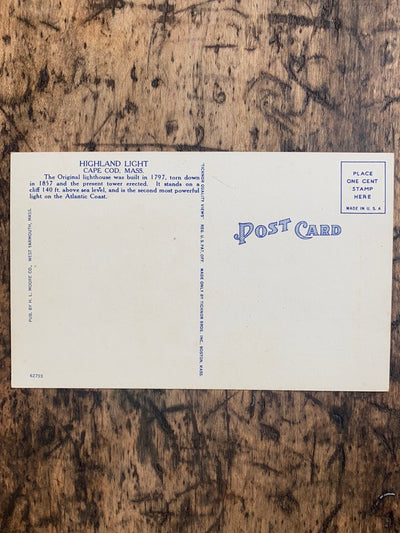 HIGHLAND LIGHT
CAPE COD, MASS.
The Original lighthouse was built in 1797, torn down
in 1857 and the present tower erected. It stands on a
cliff 140 ft. above sea level, and is the second most powerful
light on the Atlantic Coast.
PUB. BY H. L. MOORE CO., WEST YARMOUTH, MASS.
62753
"TICHNOR QUALITY VIEWS" REG. U.S. PAT. OFF. MADE ONLY BY TICHNOR BROS. INC., BOSTON, MASS.
POST CARD
PLACE
ONE CENT
STAMP
HERE
MADE IN U.S.A.